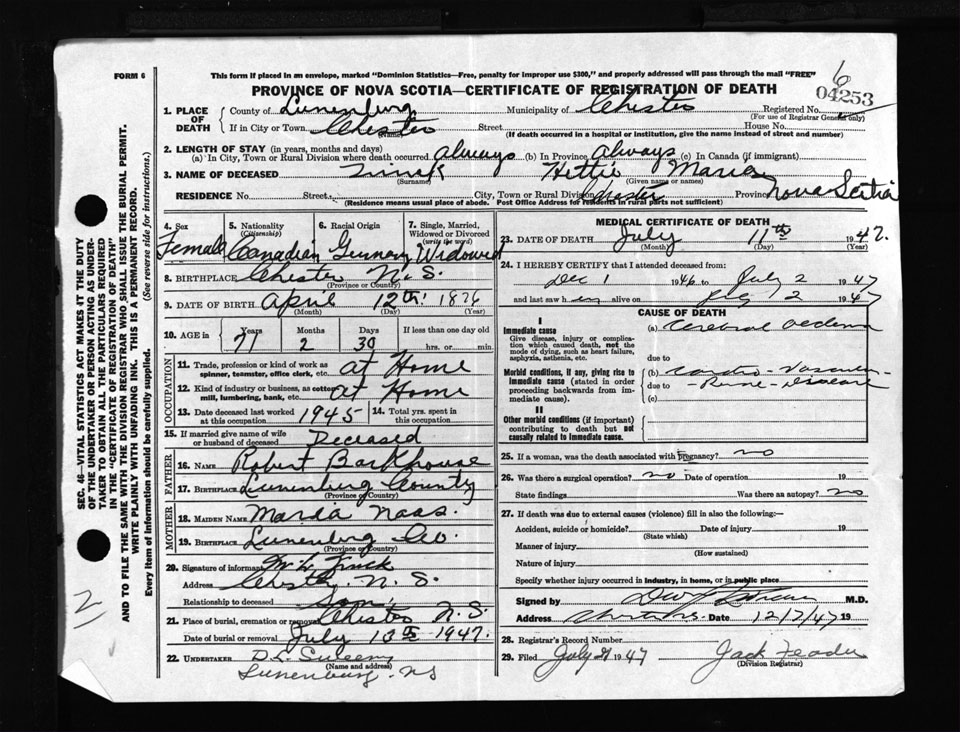 FORM 6
This form if placed in an envelope, marked "Dominion Statistics—Free, penalty for improper use $300," and properly addressed will pass through the mail "FREE"
6
PROVINCE OF NOVA SCOTIA—CERTIFICATE OF REGISTRATION OF DEATH
04253
1. PLACE OF DEATH County of Lunenburg Municipality of Chester Registered No.
(For use of Registrar General only)
If in City or Town Chester Street House No.
(Name) (If death occurred in a hospital or institution, give the name instead of street and number)
2. LENGTH OF STAY (in years, months and days)
(a) In City, Town or Rural Division where death occurred always (b) In Province always (c) In Canada (if immigrant)
3. NAME OF DECEASED Hettie Maria
(Surname) (Given name or names)
RESIDENCE No. Street City, Town or Rural Division Chester Province Nova Scotia
(Residence means usual place of abode. Post Office Address for residents in rural parts not sufficient)
4. Sex 5. Nationality (Citizenship) 6. Racial Origin 7. Single, Married, Widowed or Divorced (write the word)
Female Canadian German Widowed
8. BIRTHPLACE Chester N.S.
(Province or County)
9. DATE OF BIRTH April 12th 1876
(Month) (Day) (Year)
10. AGE in Years Months Days If less than one day old
71 2 30 hrs. or min.
OCCUPATION
11. Trade, profession or kind of work as spinner, teamster, office clerk, etc. at Home
12. Kind of industry or business, as cotton mill, lumbering, bank, etc. at Home
13. Date deceased last worked at this occupation 1945 14. Total yrs. spent in this occupation
15. If married give name of wife or husband of deceased Deceased
FATHER
16. NAME Robert Barkhouse
17. BIRTHPLACE Lunenburg County
(Province or County)
MOTHER
18. MAIDEN NAME Maria Naas.
19. BIRTHPLACE Lunenburg Co.
(Province or Country)
20. Signature of informant
Address Chester N. S.
Relationship to deceased Son
21. Place of burial, cremation or removal Chester N.S.
Date of burial or removal July 13th 1947.
22. UNDERTAKER D.L.
(Name and address)
Lunenburg. NS
MEDICAL CERTIFICATE OF DEATH
23. DATE OF DEATH July 11th 1947.
(Month) (Day) (Year)
24. I HEREBY CERTIFY that I attended deceased from:
Dec 1 1946 to July 2 1947
and last saw her alive on July 2 1947
CAUSE OF DEATH
I
Immediate cause (a) Cerebral oedema
Give disease, injury or complication which caused death, not the mode of dying, such as heart failure, asphyxia, asthenia, etc.
due to
Morbid conditions, if any, giving rise to immediate cause (stated in order proceeding backwards from immediate cause).
(b) Cardio-Vascular-
due to -disease
(c)
II
Other morbid conditions (if important) contributing to death but not causally related to immediate cause.
25. If a woman, was the death associated with pregnancy? no
26. Was there a surgical operation? no Date of operation 19
State findings Was there an autopsy? no
27. If death was due to external causes (violence) fill in also the following:—
Accident, suicide or homicide? Date of injury 19
(State which)
Manner of injury
(How sustained)
Nature of injury
Specify whether injury occurred in industry, in home, or in public place
Signed by M.D.
Address Date 12/7/47 19
28. Registrar's Record Number
29. Filed July 21 1947 Jack
(Division Registrar)
SEC. 46—VITAL STATISTICS ACT MAKES IT THE DUTY
OF THE UNDERTAKER OR PERSON ACTING AS UNDER-
TAKER TO OBTAIN ALL THE PARTICULARS REQUIRED
IN THE "CERTIFICATE OF REGISTRATION OF DEATH"
AND TO FILE THE SAME WITH THE DIVISION REGISTRAR WHO SHALL ISSUE THE BURIAL PERMIT.
WRITE PLAINLY WITH UNFADING INK. THIS IS A PERMANENT RECORD.
Every item of Information should be carefully supplied. (See reverse side for instructions.)
2